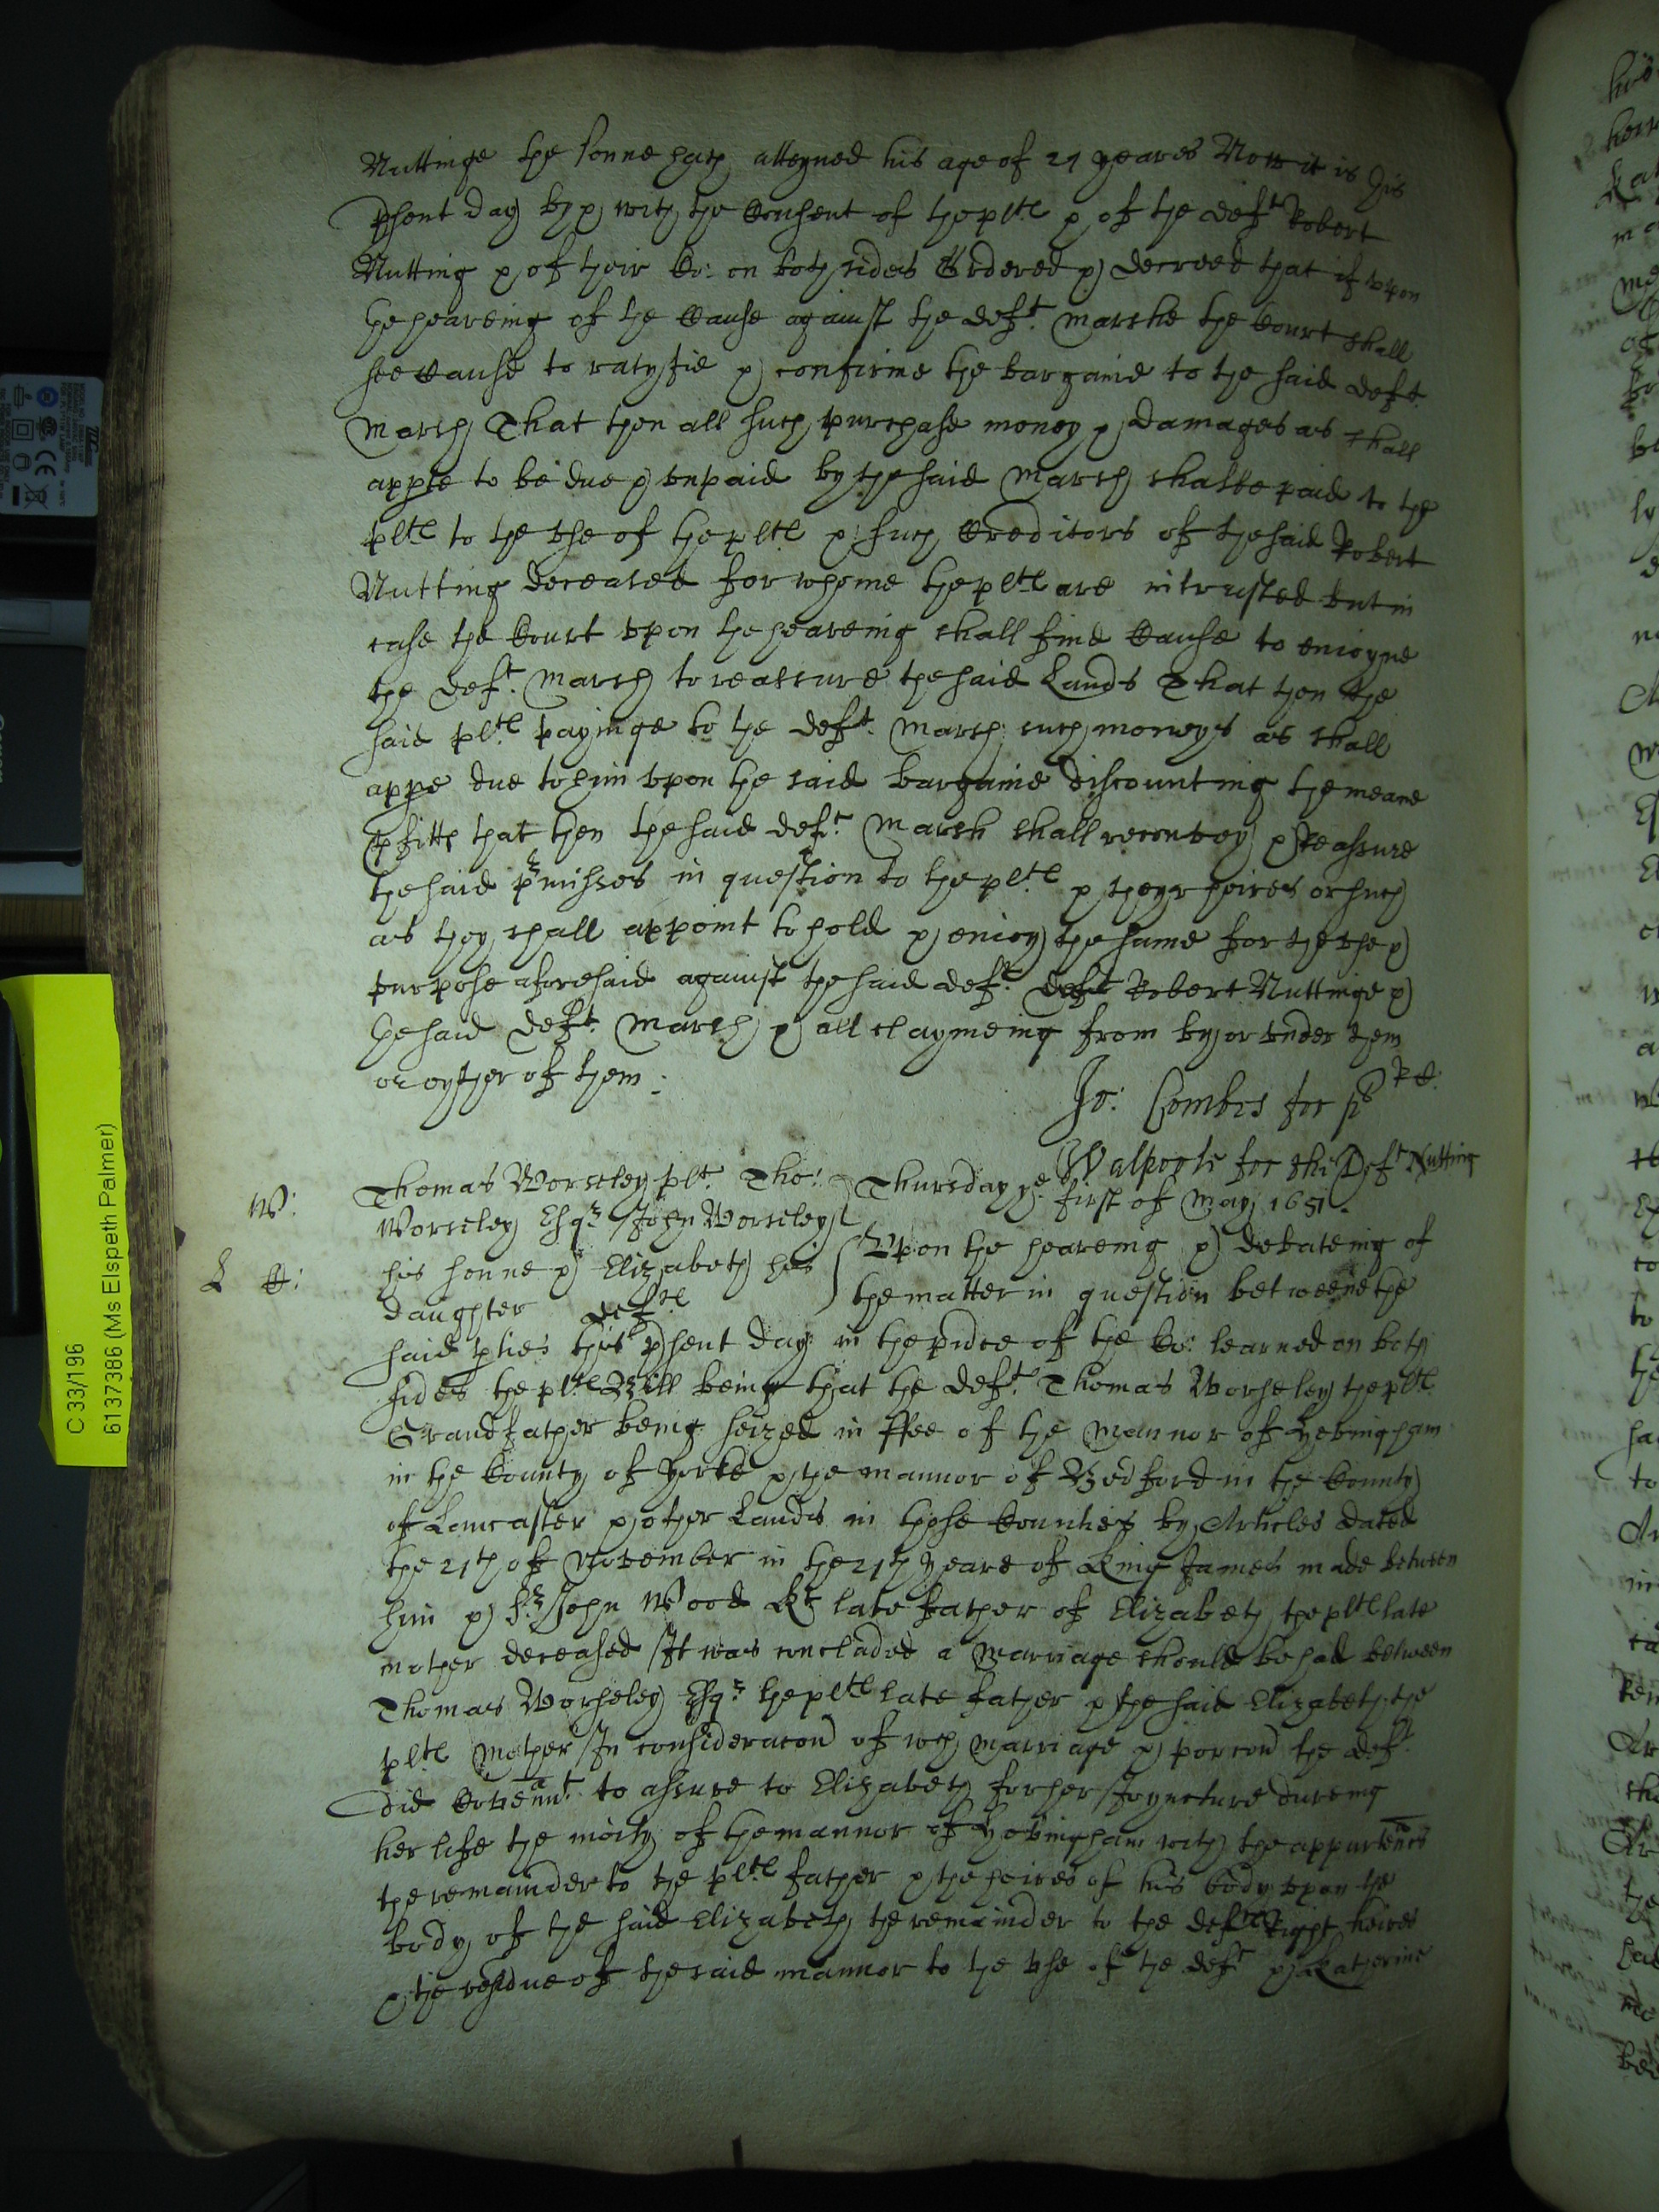 Nuttinge the sonne hath atteyned his age of 21 yeares Now it is this
p̱sent day by & with the Consent of the plts & of the deft Robert
Nutting & of their Co: on both sides Ordered & decreed that if vpon
the heareing of the Cause against the deft. Marshe the Court shall
see Cause to ratyfie & confirme the bargaine to the said deft.
Marsh That then all such purchase money & damages as shall
appeare to be due & vnpaid by the said Marsh shalbe paid to the
plts to the vse of the plts & such Creditors of the said Robert
Nutting deceased for whome the plts are intrusted but in
case the Court vpon the heareing shall find Cause to enioyne
the deft. Marsh to reassure the said Lands That then the
said plts payinge to the deft. Marsh such moneys as shall
appe due to him vpon the said bargaine discounting the meane
p̱fitts that then the said deft. Marsh shall reconvey & reassure
the said p̱misses in question to the plts & theyr heires or such
as they shall appoint to hold & enioy the same for the vse &
purpose aforesaid against the said deft. Robert Nuttinge &
the said deft. Marsh & all claymeing from by or vnder them
or eyther of them.
Jo: Combes for
Walpoole for the Deft Nutting
W:
L C:
Thomas Worseley plt. Tho:
Worseley Esqr John Worseley
his sonne & Elizabeth his
daughter defts
Thursday ye. first of May 1651.
Vpon the heareing & debateing of
the matter in question betweene the
said p̱ties this p̱sent day in the p̱nce of the Co: learned on both
sides the plts Bill being that the deft. Thomas Worseley the plts
Grandfather being seized in ffee of the Mannor of Hovingham
in the County of Yorke & the mannor of Bedford in the County
of Lancaster & other Lands in those Counties by Articles dated
the 21th of November in the 21th yeare of King James made between
him & Sr. John Wood Kt late father of Elizabeth the plts late
mother deceased It was concluded a Marriage should be had between
Thomas Worseley Esqr. the plts late father & the said Elizabeth the
plts Mother In consideracon of wch marriage & porcon the deft.
did Covennt. to assure to Elizabeth for her Joyncture dureing
her life the moity of the mannor of Hovingham with the appurtenncs
the remainder to the plts father & the heires of his body vpon the
body of the said Elizabeth the remainder to the defts Right heires
& the residue of the said mannor to the vse of the deft & Katherine
C 33/196
6137386 (Ms Elspeth Palmer)